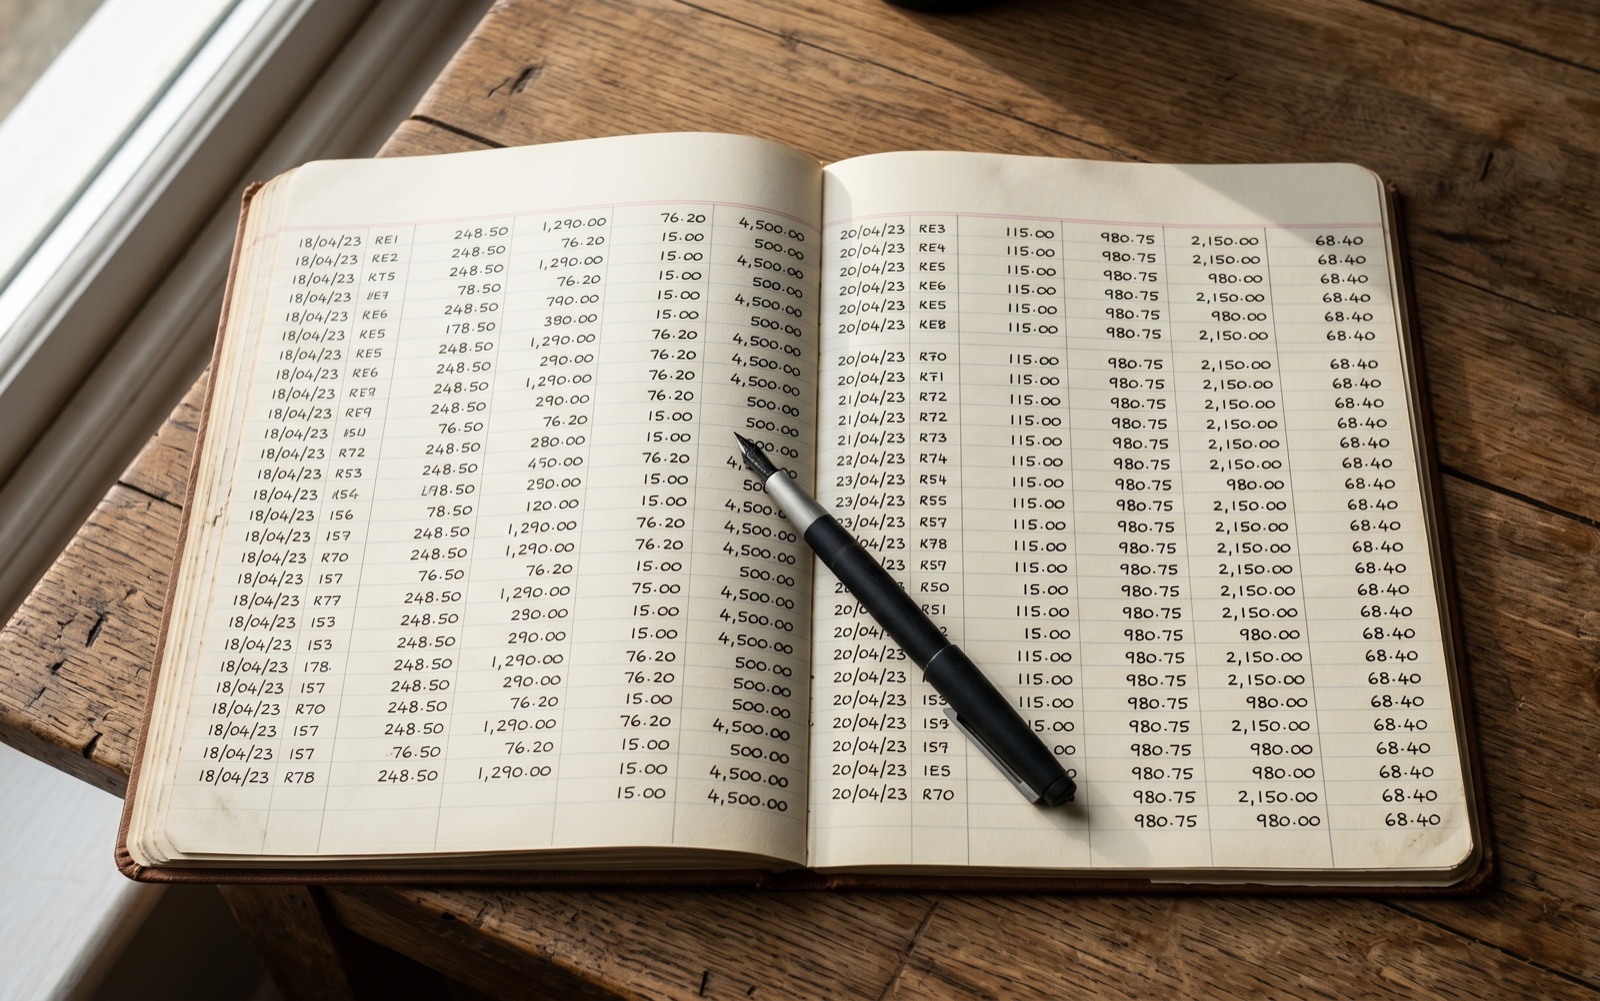 18/04/23 RE1 248.50 1,290.00 76.20 4,500.00
18/04/23 RE2 248.50 76.20 15.00 500.00
18/04/23 RT5 248.50 1,290.00 15.00 4,500.00
18/04/23 78.50 76.20 15.00 500.00
18/04/23 RE6 248.50 790.00 15.00 4,500.00
18/04/23 RE5 178.50 390.00 15.00 500.00
18/04/23 RE5 248.50 1,290.00 76.20 4,500.00
18/04/23 RE6 248.50 290.00 76.20 4,500.00
18/04/23 248.50 1,290.00 76.20 4,500.00
18/04/23 RE9 248.50 290.00 76.20 500.00
18/04/23 76.50 76.20 15.00 500.00
18/04/23 R72 248.50 280.00 15.00
18/04/23 R53 248.50 450.00 76.20
18/04/23 290.00 15.00
18/04/23 156 78.50 120.00 15.00 4,500.
18/04/23 157 248.50 1,290.00 76.20 4,500.00
18/04/23 R70 248.50 1,290.00 76.20 4,500.00
18/04/23 157 76.50 76.20 15.00 500.00
18/04/23 R77 248.50 1,290.00 75.00 4,500.00
18/04/23 153 248.50 290.00 15.00 4,500.00
18/04/23 153 248.50 290.00 15.00 4,500.00
18/04/23 178. 248.50 1,290.00 76.20 500.00
18/04/23 157 248.50 290.00 76.20 500.00
18/04/23 R70 248.50 76.20 15.00 500.00
18/04/23 157 248.50 1,290.00 76.20 4,500.00
18/04/23 157 76.50 76.20 15.00 500.00
18/04/23 R78 248.50 1,290.00 15.00 4,500.00
15.00 4,500.00
20/04/23 RE3 115.00 980.75 2,150.00 68.40
20/04/23 RE4 115.00 980.75 2,150.00 68.40
20/04/23 RE5 115.00 980.75 980.00 68.40
20/04/23 KE6 115.00 980.75 2,150.00 68.40
20/04/23 KE5 115.00 980.75 980.00 68.40
20/04/23 KE8 115.00 980.75 2,150.00 68.40
20/04/23 R70 115.00 980.75 2,150.00 68.40
20/04/23 K71 115.00 980.75 2,150.00 68.40
21/04/23 R72 115.00 980.75 2,150.00 68.40
21/04/23 R72 115.00 980.75 2,150.00 68.40
21/04/23 R73 115.00 980.75 2,150.00 68.40
R74 115.00 980.75 2,150.00 68.40
23/04/23 R54 115.00 980.75 980.00 68.40
23/04/23 R55 115.00 980.75 2,150.00 68.40
R57 115.00 980.75 2,150.00 68.40
K78 115.00 980.75 2,150.00 68.40
R59 115.00 980.75 2,150.00 68.40
R50 15.00 980.75 2,150.00 68.40
115.00 980.75 2,150.00 68.40
20/04/23 15.00 980.75 980.00 68.40
20/04/23 115.00 980.75 2,150.00 68.40
20/04/23 115.00 980.75 2,150.00 68.40
20/04/23 153 115.00 980.75 980.00 68.40
20/04/23 980.75 2,150.00 68.40
20/04/23 980.75 980.00 68.40
20/04/23 1ES 980.75 980.00 68.40
20/04/23 R70 980.75 2,150.00 68.40
980.75 980.00 68.40